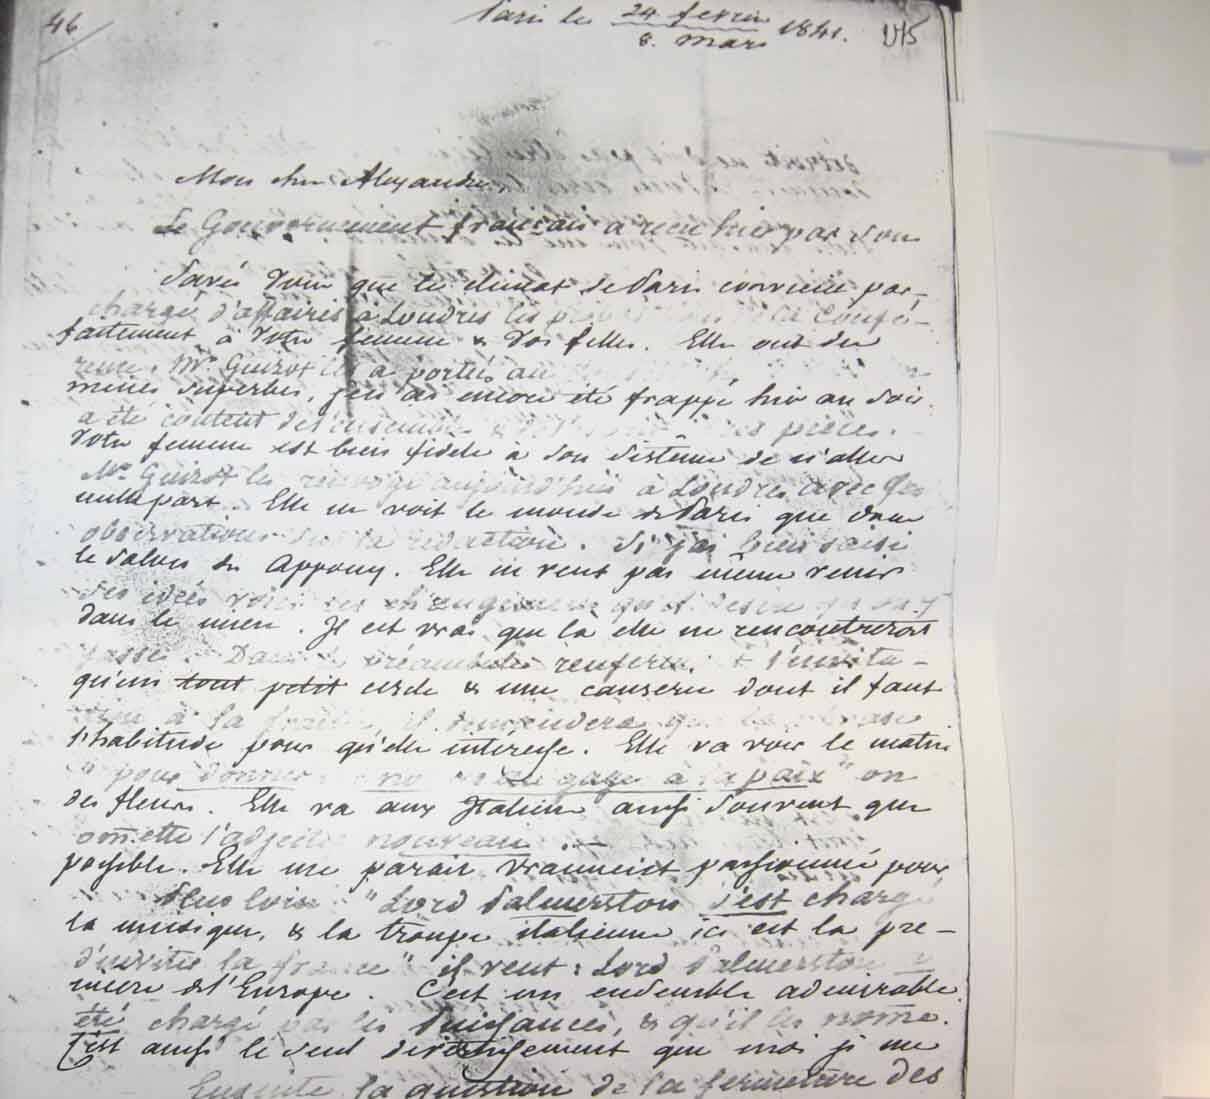 46
Paris le 24 fevrier 1841.
8. mars
175
Mon cher Alexandre,
Le Gouvernement français a reçu hier par son
Savés Vous que le climat de Paris convient par-
chargé d'affaires à Londres les de la Confé-
faitement à Votre femme & Vos filles. Elles ont des
rence. Mr. Guizot les a portés au
mines superbes, j'en ai encore été frappé hier au soir.
a été content de l'ensemble & des pièces.
Votre femme est bien fidèle à son sistême de n'aller
Mr. Guizot les renvoye aujourd'hui à Londres avec ses
nulle part. Elle ne voit le monde de Paris que dans
observations sur la rédaction. Si j'ai bien saisi
le salon des Appony. Elle ne veut pas même venir
ses idées voici les changemens qu'il desire
dans le mien. Il est vrai que là elle ne rencontreroit
Dans le préambule renfermé l'invita-
qu'un tout petit cercle & une causerie dont il faut
-tion à la france, il demandera que la phrase
l'habitude pour qu'elle intéresse. Elle va voir le matin
"pour donner un gage à la paix" on
des fleurs. Elle va aux Italiens aussi souvent que
omette l'adjectif nouveau
possible. Elle me parait vraiment passionnée pour
Plus loin "Lord Palmerston s'est chargé
la musique, & la troupe italienne ici est la pre-
d'inviter la france" il veut: Lord Palmerston a
mière de l'Europe. C'est un ensemble admirable.
été chargé par les Puissances, & qu'il les nomme.
C'est aussi le seul divertissement que moi je me
Ensuite la question de la fermeture des